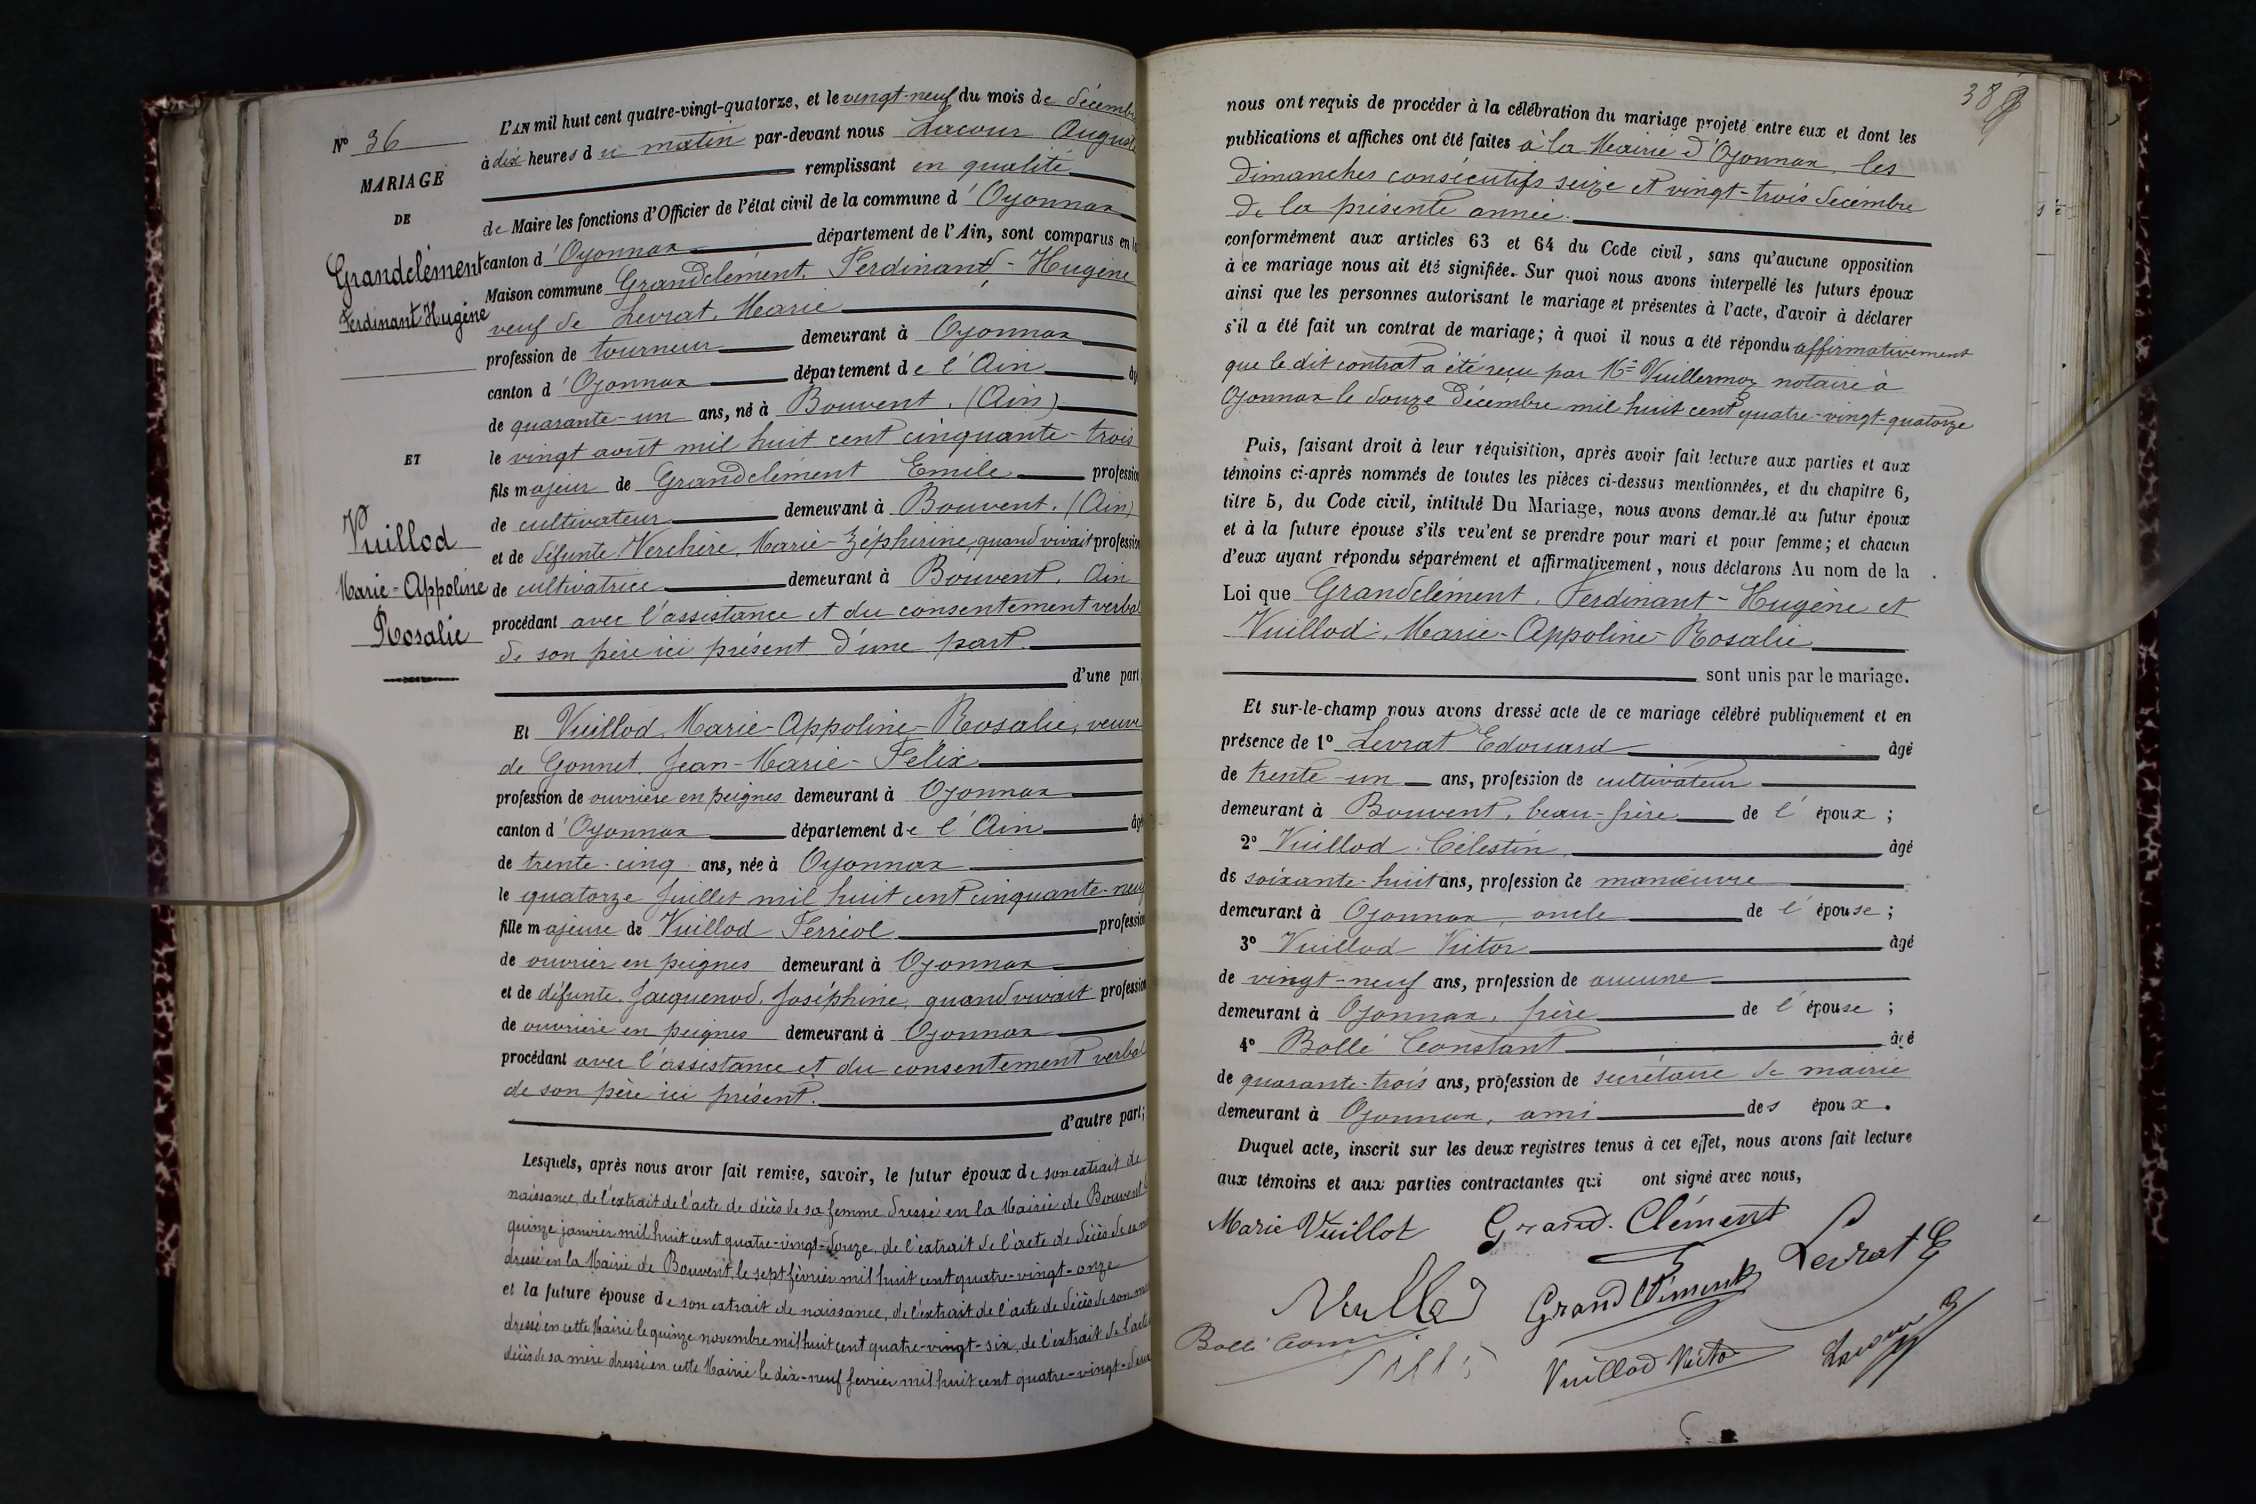 N° 36
MARIAGE
DE
Grandclément
Ferdinant Hugène
ET
Vuillod
Marie-Appoline
Rosalie
L'AN mil huit cent quatre-vingt-quatorze, et le vingt-neuf du mois de décembre
à dix heures du matin par-devant nous Lacour Auguste
remplissant en qualité
de Maire les fonctions d'Officier de l'état civil de la commune d'Oyonnax
canton d'Oyonnax département de l'Ain, sont comparus en la
Maison commune Grandclément, Ferdinant-Hugène
veuf de Levrat, Marie
profession de tourneur demeurant à Oyonnax
canton d'Oyonnax département de l'Ain âgé
de quarante-un ans, né à Bouvent, (Ain)
le vingt août mil huit cent cinquante-trois
fils majeur de Grandclément Emile profession
de cultivateur demeurant à Bouvent, (Ain)
et de défunte Verchère, Marie-Zéphirine, quand vivait profession
de cultivatrice demeurant à Bouvent, Ain
procédant avec l'assistance et du consentement verbal
de son père ici présent d'une part.
d'une part
Et Vuillod Marie-Appoline-Rosalie, veuve
de Gonnet, Jean-Marie-Félix
profession de ouvrière en peignes demeurant à Oyonnax
canton d'Oyonnax département de l'Ain âgé
de trente-cinq ans, née à Oyonnax
le quatorze Juillet mil huit cent cinquante-neuf
fille majeure de Vuillod Ferréol profession
de ouvrier en peignes demeurant à Oyonnax
et de défunte, Jacquenod, Joséphine, quand vivait profession
de ouvrière en peignes demeurant à Oyonnax
procédant avec l'assistance et du consentement verbal
de son père ici présent.
d'autre part;
Lesquels, après nous avoir fait remise, savoir, le futur époux de son extrait de
naissance, de l'extrait de l'acte de décès de sa femme dressé en la Mairie de Bouvent
quinze janvier mil huit cent quatre-vingt-douze, de l'extrait de l'acte de décès de sa
dressé en la Mairie de Bouvent, le sept février mil huit cent quatre-vingt-onze
et la future épouse de son extrait de naissance, de l'extrait de l'acte de décès de son
dressé en cette Mairie le quinze novembre mil huit cent quatre-vingt-six, de l'extrait de l'acte
décès de sa mère dressé en cette Mairie le dix-neuf février mil huit cent quatre-vingt-deux
38
nous ont requis de procéder à la célébration du mariage projeté entre eux et dont les
publications et affiches ont été faites à la Mairie d'Oyonnax, les
Dimanches consécutifs seize et vingt-trois décembre
de la présente année.
conformément aux articles 63 et 64 du Code civil, sans qu'aucune opposition
à ce mariage nous ait été signifiée. Sur quoi nous avons interpellé les futurs époux
ainsi que les personnes autorisant le mariage et présentes à l'acte, d'avoir à déclarer
s'il a été fait un contrat de mariage; à quoi il nous a été répondu affirmativement
que le dit contrat a été reçu par Me Vuillermoz notaire à
Oyonnax le douze Décembre mil huit cent quatre-vingt-quatorze
Puis, faisant droit à leur réquisition, après avoir fait lecture aux parties et aux
témoins ci-après nommés de toutes les pièces ci-dessus mentionnées, et du chapitre 6,
titre 5, du Code civil, intitulé Du Mariage, nous avons demandé au futur époux
et à la future épouse s'ils veulent se prendre pour mari et pour femme; et chacun
d'eux ayant répondu séparément et affirmativement, nous déclarons Au nom de la
Loi que Grandclément, Ferdinant-Hugène et
Vuillod, Marie-Appoline-Rosalie
sont unis par le mariage.
Et sur-le-champ nous avons dressé acte de ce mariage célébré publiquement et en
présence de 1° Levrat Edouard âgé
de trente-un ans, profession de cultivateur
demeurant à Bouvent, beau-frère de l'époux;
2° Vuillod Célestin âgé
de soixante-huit ans, profession de manœuvre
demeurant à Oyonnax, oncle de l'épouse;
3° Vuillod Victor âgé
de vingt-neuf ans, profession de aucune
demeurant à Oyonnax, frère de l'épouse;
4° Bollé Constant âgé
de quarante-trois ans, profession de secrétaire de mairie
demeurant à Oyonnax, ami des époux.
Duquel acte, inscrit sur les deux registres tenus à cet effet, nous avons fait lecture
aux témoins et aux parties contractantes qui ont signé avec nous,
Marie Vuillot Grand. Clément Levrat E
Grand Clément
Bollé
Vuillod Victor